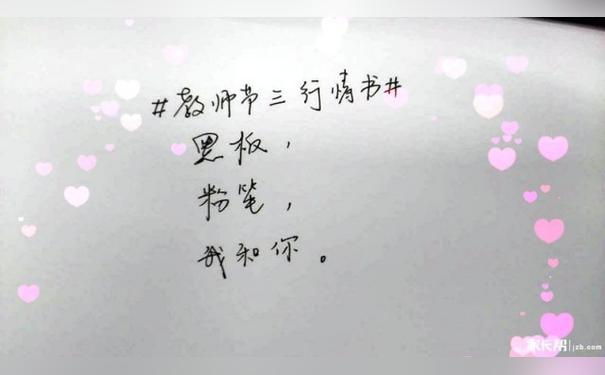 #教师节三行情书#
黑板，
粉笔，
我和你。
家长帮 jzb.com